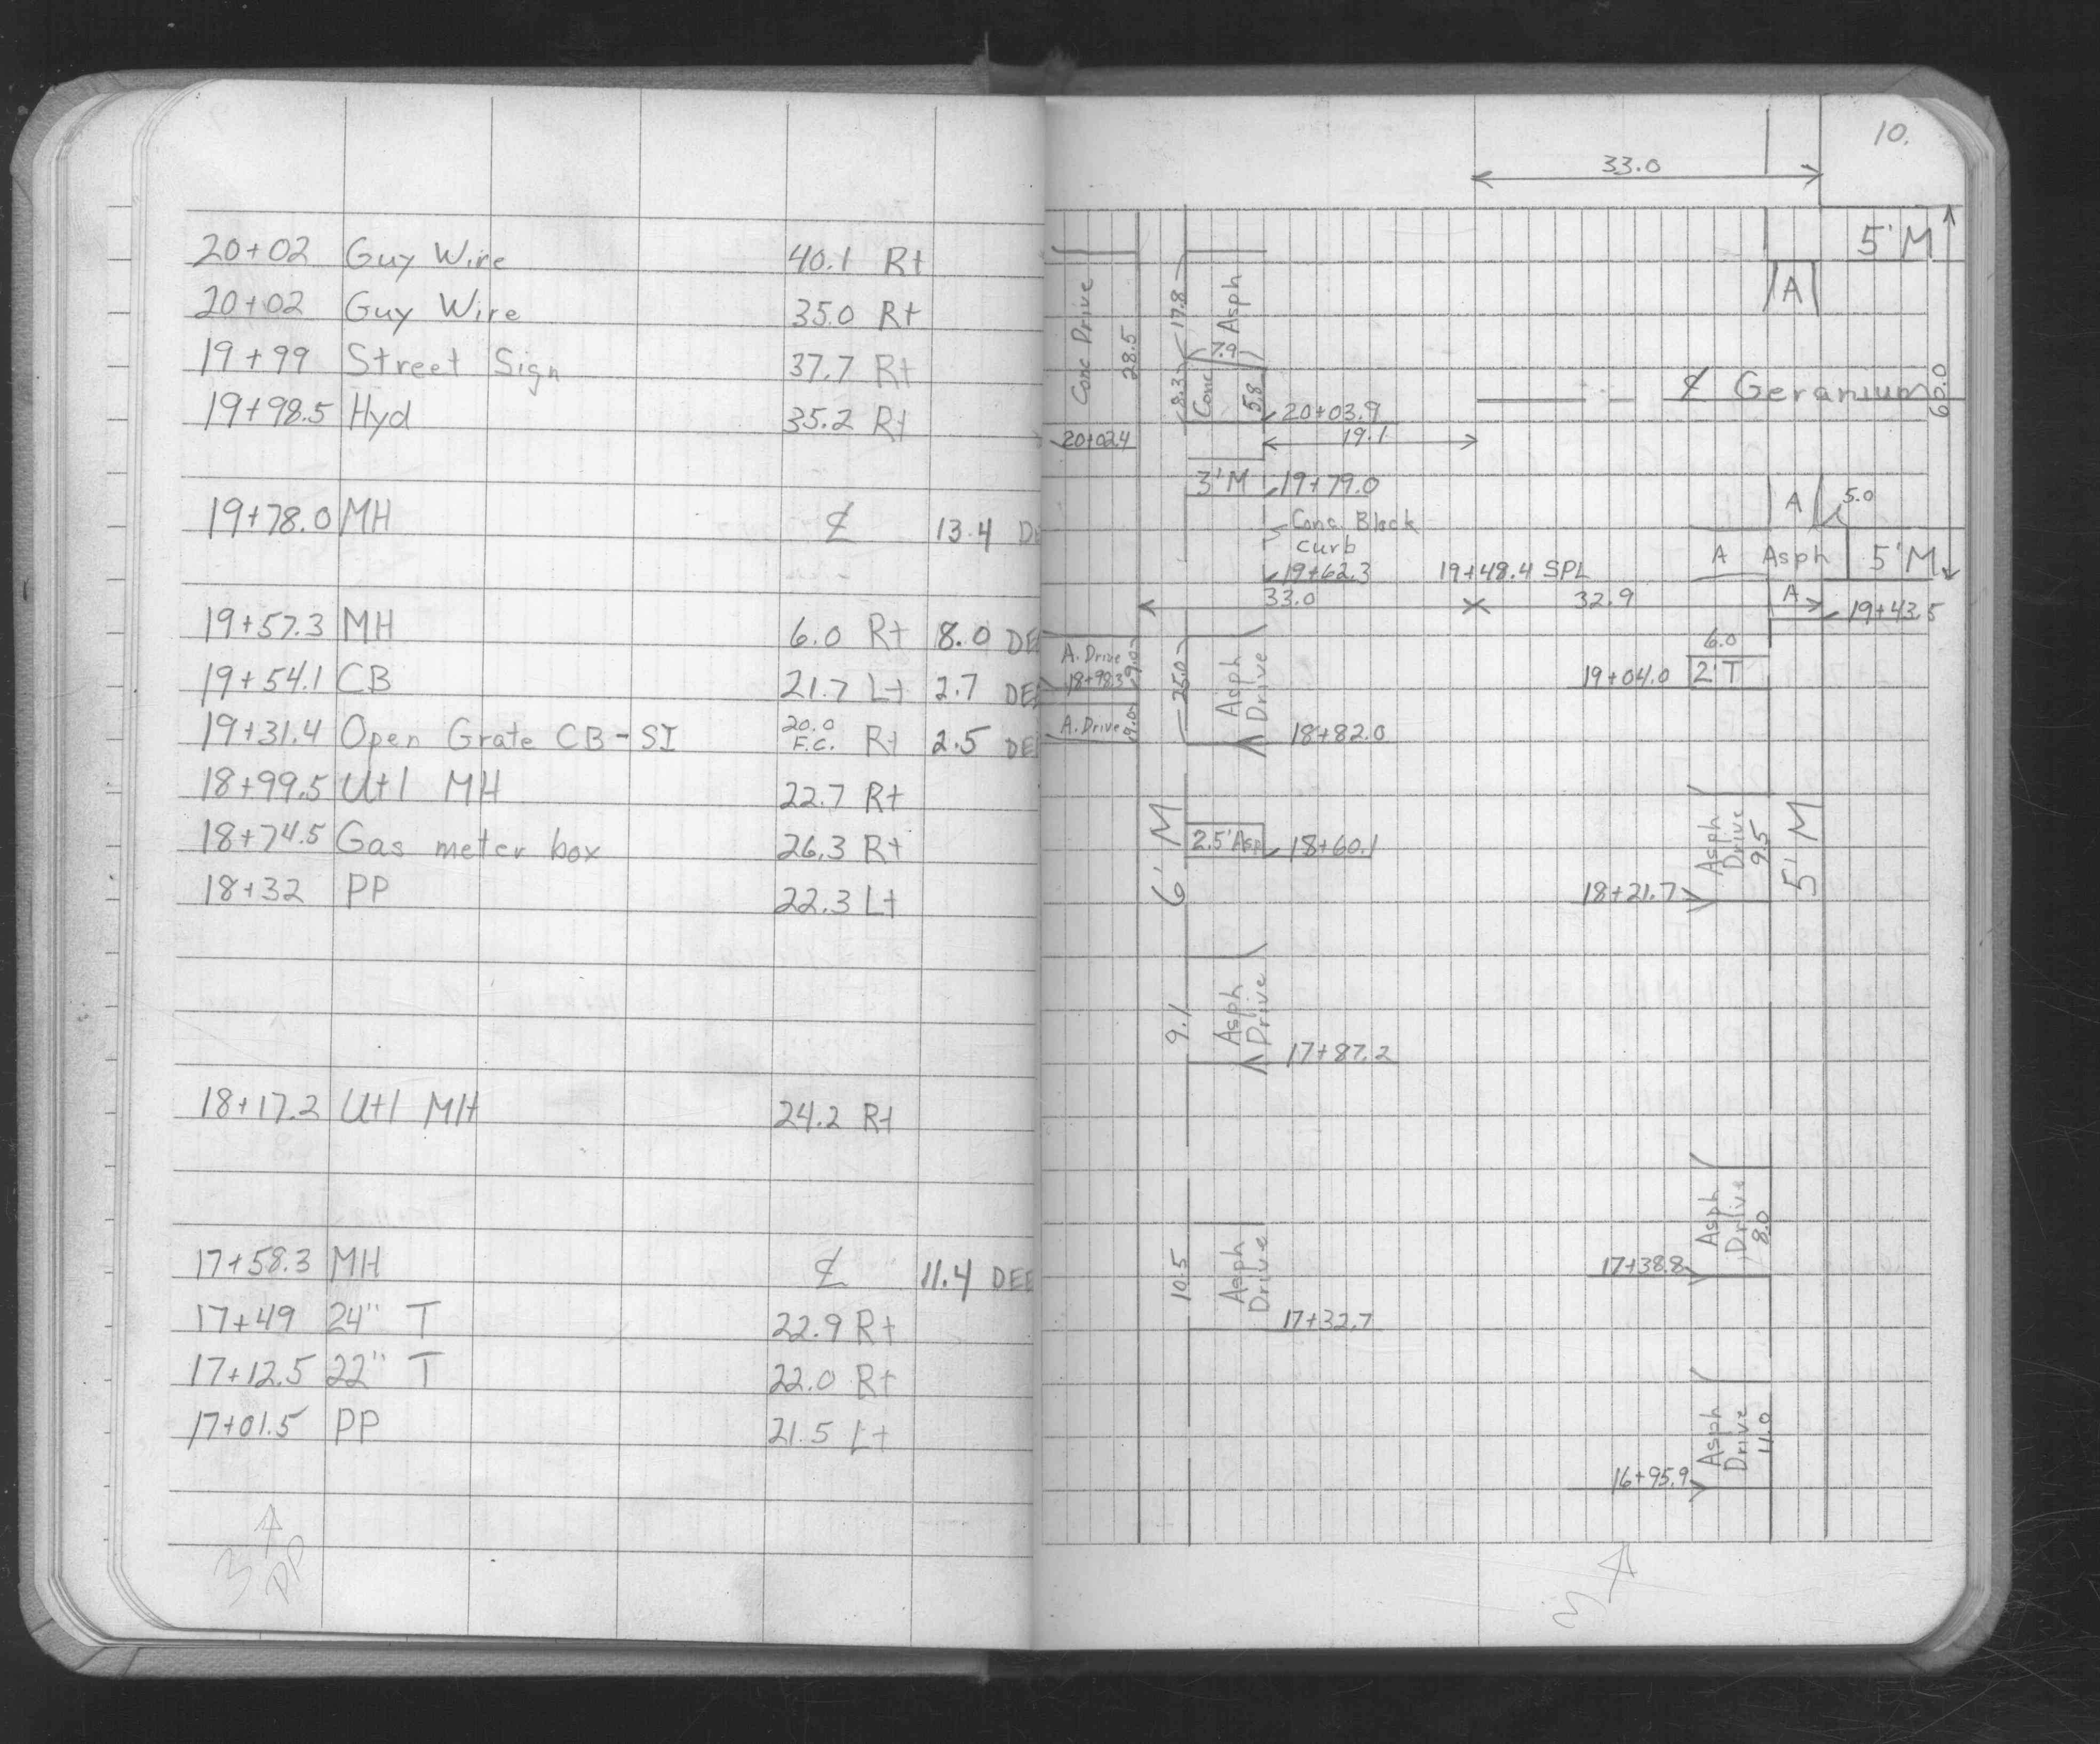 20+02 Guy Wire 40.1 Rt
20+02 Guy Wire 35.0 Rt
19+99 Street Sign 37.7 Rt
19+98.5 Hyd 35.2 Rt
19+78.0 MH ℄ 13.4
19+57.3 MH 6.0 Rt 8.0
19+54.1 CB 21.7 Lt 2.7
19+31.4 Open Grate CB-SI 20.0 F.C. Rt 2.5
18+99.5 Utl MH 22.7 Rt
18+74.5 Gas meter box 26.3 Rt
18+32 PP 22.3 Lt
18+17.2 Utl MH 24.2 Rt
17+58.3 MH ℄ 11.4
17+49 24" T 22.9 Rt
17+12.5 22" T 22.0 Rt
17+01.5 PP 21.5 Lt
3 PP
10.
33.0
5'M
A
Conc Drive
28.5
17.8
Asph
7.9
8.3
Conc
5.8
20+03.9
℄ Geranium
60.0
20+02.4
19.1
3'M
19+79.0
Conc Block
curb
19+62.3
A
5.0
A Asph
5'M
19+48.4 SPL
33.0
32.9
A
19+43.5
A. Drive
18+98.3
9.0
25.0
Asph
Drive
6.0
19+04.0
2'T
A. Drive
9.0
18+82.0
6'M
2.5'Asp
18+60.1
Asph
Drive
9.5
5'M
18+21.7
9.1
Asph
Drive
17+87.2
Asph
Drive
8.0
17+38.8
10.5
Asph
Drive
17+32.7
Asph
Drive
11.0
16+95.9
3